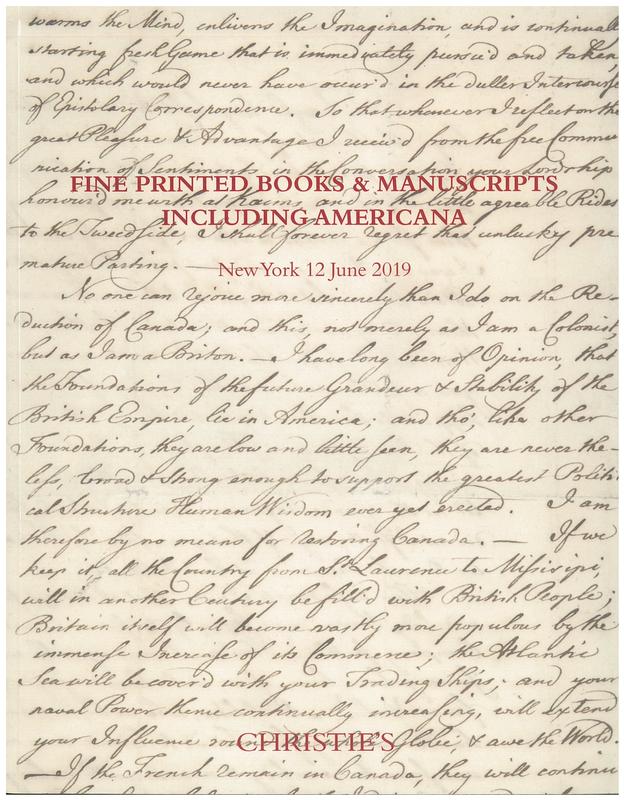 warms the Mind, enlivens the Imagination, and is continually
starting fresh Game that is immediately pursu'd and taken,
and which would never have occur'd in the duller Intercourse
of Epistolary Correspondence. So that whenever I reflect on the
great Pleasure & Advantage I receiv'd from the free Commu-
nication of Sentiments in the Conversation your Lordship
FINE PRINTED BOOKS & MANUSCRIPTS
honour'd me with at Kaims, and in the little agreable Rides
INCLUDING AMERICANA
to the Tweedside, I shall forever regret that unlucky pre
mature Parting. —
New York 12 June 2019
No one can rejoice more sincerely than I do on the Re-
duction of Canada; and this, not merely as I am a Colonist,
but as I am a Briton. — I have long been of Opinion, that
the Foundations of the future Grandeur & Stability of the
British Empire, lie in America; and tho', like other
Foundations, they are low and little seen, they are never the-
less, broad & strong enough to support the greatest Politi
cal Structure Human Wisdom ever yet erected. I am
therefore by no means for restoring Canada. — If we
keep it, all the Country from St. Laurence to Missisipi,
will in another Century be fill'd with British People;
Britain itself will become vastly more populous by the
immense Increase of its Commerce; the Atlantic
Sea will be cover'd with your Trading Ships; and your
naval Power thence continually increasing, will extend
your Influence round the whole Globe, & awe the World.
CHRISTIE'S
— If the French remain in Canada, they will continu